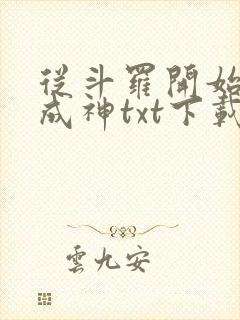 從斗羅開始
成神txt下載
雲九安